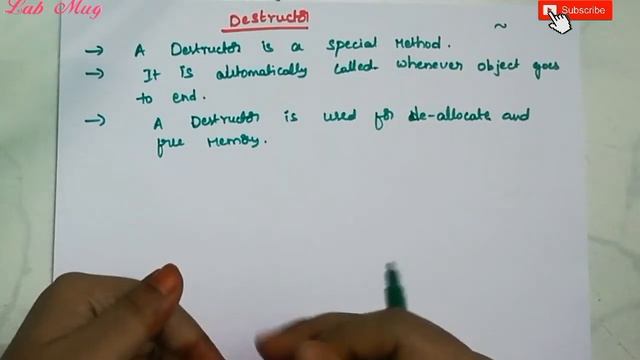 Lab Mug
Subscribe
Destructor
~
→ A Destructor is a special Method.
→ It is automatically called whenever object goes
to end.
→ A Destructor is used for de-allocate and
free Memory.